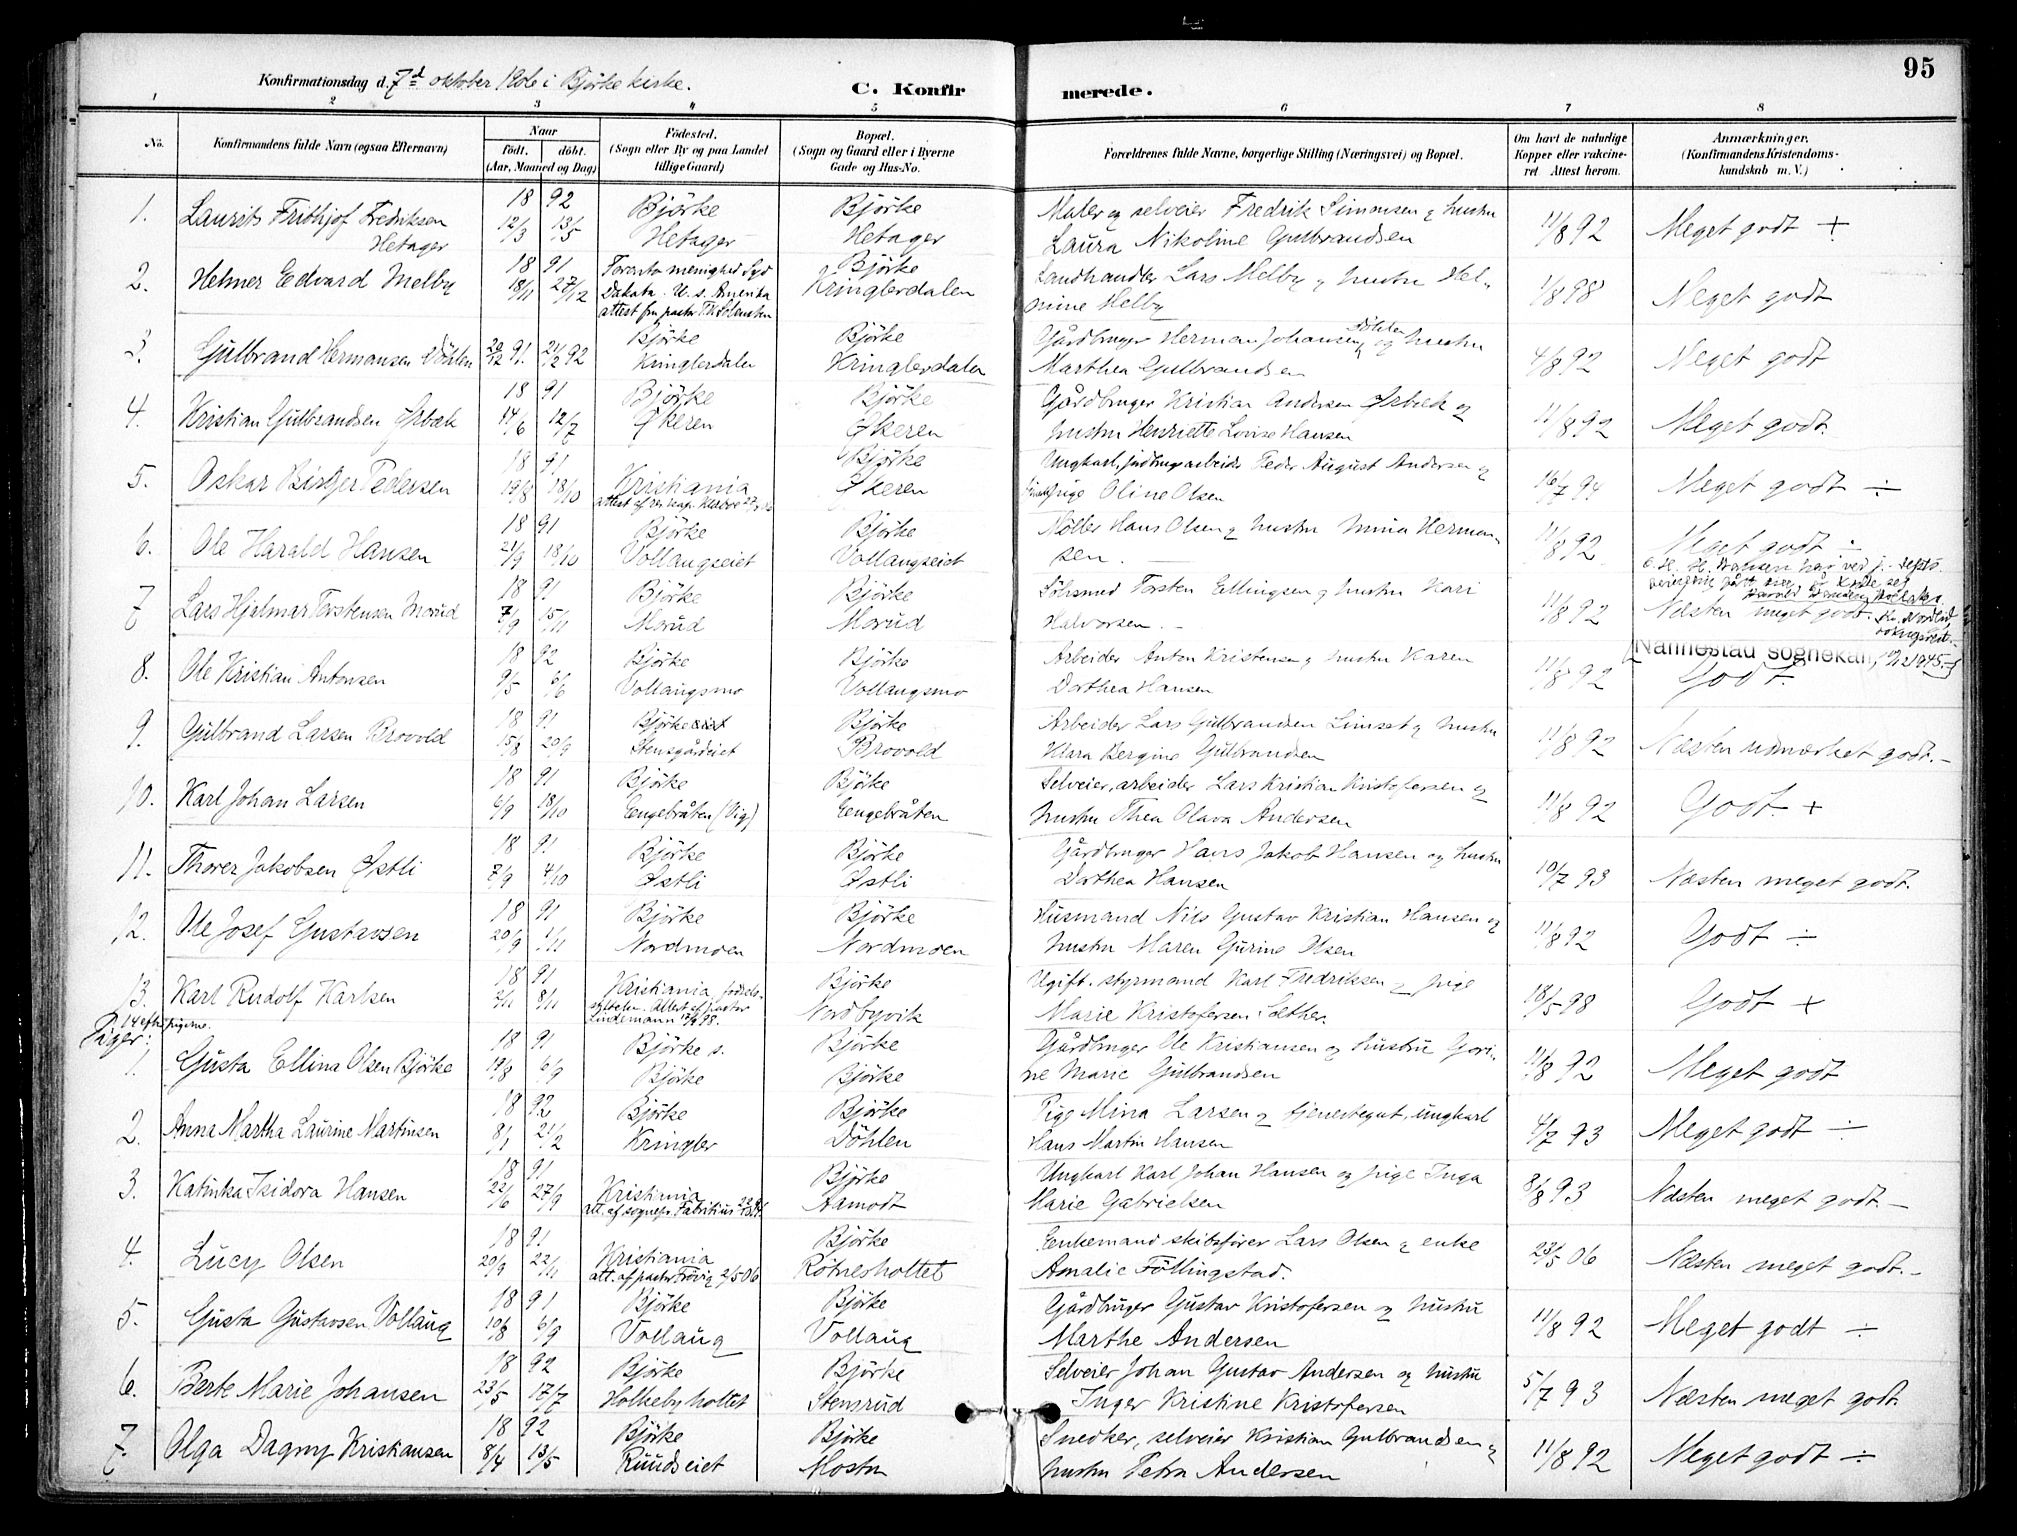 95
Konfirmationsdag d. 7d oktober 1906 i Bjørke kirke.
C. Konfirmerede.
1 2 3 4 5 6 7 8
No.
Konfirmandens fulde Navn (ogsaa Efternavn)
Naar
født. døbt.
(Aar, Maaned og Dag)
Fødested.
(Sogn eller By og paa Landet
tillige Gaard)
Bopæl.
(Sogn og Gaard eller i Byerne
Gade og Hus-No.
Forældrenes fulde Navne, borgerlige Stilling (Næringsvei) og Bopæl.
Om havt de naturlige
Kopper eller vakcine-
ret. Attest herom.
Anmærkninger.
(Konfirmandens Kristendoms-
kundskab m. V.)
1. Laurits Frithjof Fredriksen 18 92 Bjørke Bjørke Maler og selveier Fredrik Simonsen og hustru 11/8 92 Meget godt +
Hetager 12/3 13/5 Hetager Hetager Laura Nikoline Gulbrandsen
2. Helmer Edvard Melby 18 91 Toronto menighed Syd Bjørke Landhandler Lars Melby og hustru Hel- 1/8 98 Meget godt
18/11 27/12 Dakota. U. S. Amerika Kringlerdalen mine Melby
attest fra pastor
3. Gulbrand Hermansen Döhlen 20/12 91. 21/2 92 Bjørke Bjørke Gårdbruger Herman Johansen Döhlen og hustru 4/8 92 Meget godt
Kringlerdalen Kringlerdalen Marthea Gulbrandsen
4. Kristian Gulbrandsen Ørbæk 18 91 Bjørke Bjørke Gårdbruger Kristian Andersen Ørbæk og 11/8 92 Meget godt.
14/6 12/7 Økeren Økeren hustru Henriette Lovise Hansen
5. Oskar Birger Pedersen 18 91 Kristiania Bjørke Ungkarl, jordbrugsarbeider Peder August Andersen og 16/7 94 Meget godt ÷
19/8 18/10 attest af Økeren pige Oline Olsen
6. Ole Harald Hansen 18 91 Bjørke Bjørke Møller Hans Olsen og hustru Mina Herman- 11/8 92 Meget godt ÷
21/9 18/10 Vollaugseiet Vollaugseiet sen.
O. H. Hansen har ved
7 Lars Hjelmar Torstensen Morud 18 91 Bjørke Bjørke Torsten Ellingsen og hustru Kari 11/8 92 Næsten meget godt.
7/9 15/11 Morud Morud Halvorsen.
Nannestad sognekall, 10/12 1945
8. Ole Kristian Antonsen 18 92 Bjørke Bjørke Arbeider Anton Kristensen og hustru Karen 11/8 92 Godt.
9/5 6/6 Vollaugsmo Vollaugsmo Dorthea Hansen
9. Gulbrand Larsen Brovold 18 91 Bjørke Bjørke Arbeider Lars Gulbrandsen Limset og hustru 11/8 92 Næsten udmærket godt.
15/8 20/9 Stensgårdeiet Brovold Klara Bergine Gulbrandsen
10. Karl Johan Larsen 18 91 Bjørke Bjørke Selveier, arbeider Lars Kristian Kristofersen og 11/8 92 Godt. +
6/9 18/10 Engebråten (Vig) Engebråten hustru Thea Olava Andersen
11. Thorer Jakobsen Østli 18 91 Bjørke Bjørke Gårdbruger Hans Jakob Hansen og hustru 10/7 93 Næsten meget godt.
7/9 4/10 Østli Østli Dorthea Hansen
12. Ole Josef Gustavsen 18 91 Bjørke Bjørke Husmand Nils Gustav Kristian Hansen og 11/8 92 Godt ÷
20/9 1/11 Nordmoen Nordmoen hustru Maren Gurine Olsen
13. Karl Rudolf Karlsen 18 91 Kristiania fødsels- Bjørke Ugift. styrmand Karl Fredriksen og pige 18/5 98 Godt +
2/11 8/11 stiftelsen. Attest af pastor Nordbyvik Marie Kristofersen Sæther.
Lindemann 17/9 98.
14 efter pigerne.
Piger:
1. Gusta Ellina Olsen Bjørke 18 91 Bjørke s. Bjørke Gårdbruger Ole Kristiansen og hustru Gori- 11/8 92 Meget godt
19/8 6/9 Bjørke Bjørke ne Marie Gulbrandsen
2. Anna Martha Laurine Martinsen 18 92 Bjørke Bjørke Pige Mina Larsen og tjenestegut, ungkarl 4/7 93 Meget godt ÷
8/1 21/2 Kringler Döhlen Hans Martin Hansen
3. Katinka Isidora Hansen 18 91 Kristiania Bjørke Ungkarl Karl Johan Hansen og pige Inga 8/8 93 Næsten meget godt.
22/6 27/9 att. af sognepr. Fabritius Aamodt Marie Gabrielsen
4. Lucy Olsen 18 91 Kristiania Bjørke Enkemand skibsfører Lars Olsen og enke 23/5 06 Næsten meget godt.
20/9 22/11 att. af pastor Frövig 2/5 06 Rotnesholtet Amalie Föllingstad.
5. Gusta Gustavsen Vollaug 18 91 Bjørke Bjørke Gårdbruger Gustav Kristofersen og hustru 11/8 92 Meget godt ÷
10/8 6/9 Vollaug Vollaug Marthe Andersen
6. Berte Marie Johansen 18 92 Bjørke Bjørke Selveier Johan Gustav Andersen og hustru 5/7 93 Næsten meget godt.
23/5 17/7 Holkebyholtet Stensrud Inger Kristine Kristofersen
7. Olga Dagny Kristiansen 18 92 Bjørke Bjørke Snedker, selveier Kristian Gulbrandsen og 11/8 92 Meget godt ÷
8/4 13/5 Ruudseiet Mostu hustru Petra Andersen